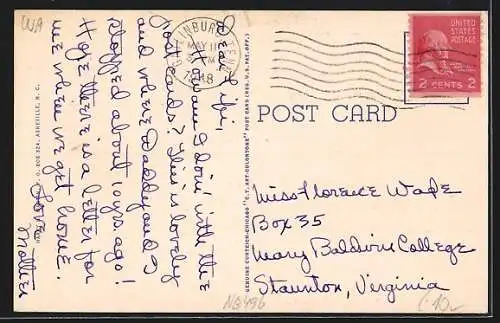 WA
GATLINBURG TENN.
MAY 11
1948
UNITED
STATES
POSTAGE
2 CENTS 2
POST CARD
Dear
How am I doin' with the
post cards? This is lovely
and where Daddy and I
stopped about 10 yrs. ago!
Hope there is a letter for
me when we get home.
Love
Mother
ASHEVILLE, N. C.
GENUINE CURTEICH-CHICAGO "C.T. ART-COLORTONE" POST CARD (REG. U.S. PAT. OFF.)
Miss Florence Wape
Box 35
Mary Baldwin College
Staunton, Virginia